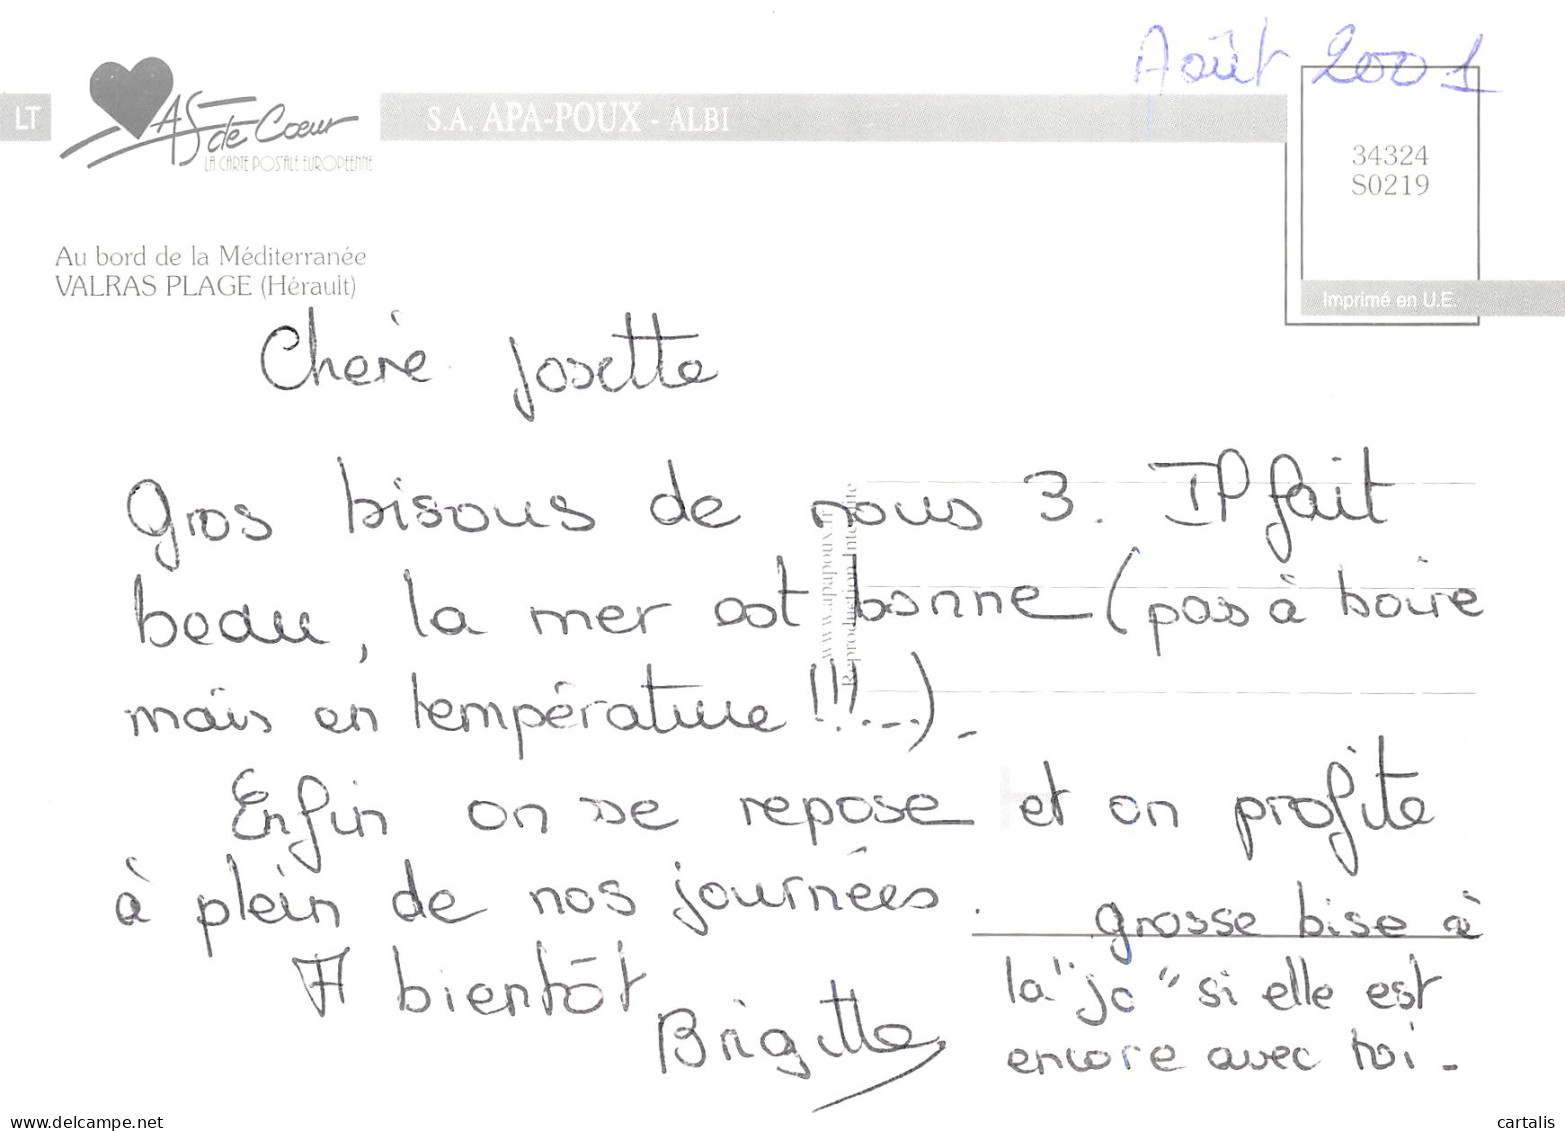 Août 2001
LT
AS de Cœur
LA CARTE POSTALE EUROPEENNE
S.A. APA-POUX - ALBI
34324
S0219
Au bord de la Méditerranée
VALRAS PLAGE (Hérault)
Imprimé en U.E.
www.apapoux.fr
Reproduction Interdite
Chère Josette
Gros bisous de nous 3. Il fait
beau, la mer est bonne (pas à boire
mais en température !!!...).
Enfin on se repose et on profite
à plein de nos journées.
A bientôt
Brigitte
grosse bise à
la "jo" si elle est
encore avec toi.
www.delcampe.net
cartalis